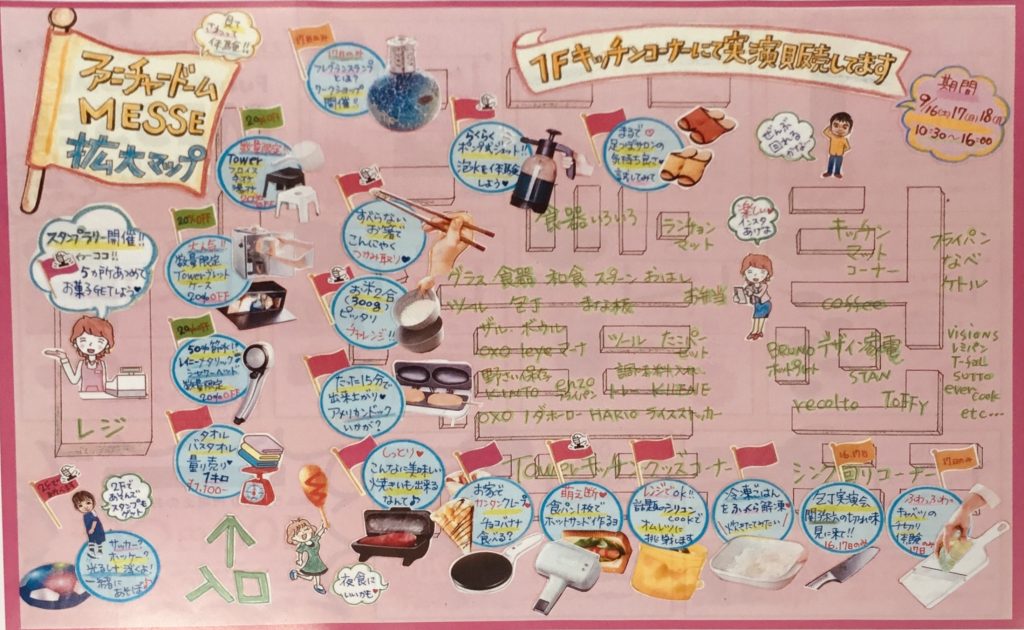 ファニチャードーム
MESSE
拡大マップ
見て
さわって
体験!!
1Fキッチンコーナーにて実演販売してます
期間
9/16(土)17(日)18(月)
10:30〜16:00
17日のみ
フレグランスランプ
とは?
ワークショップ
開催!!
20%OFF
数量限定!
Tower
20%OFF
らくらく
ポンプ式ジェット!!
泡水を体験
しよう♥
まるで♥
足つぼサロンの
気持ち良さ
試してみて
ぜんぶ
回れる
かな?
スタンプラリー開催!!
5カ所あつめて
お菓子GETしよう♥
レジ
20%OFF
大人気!!
数量限定
Towerブレッド
ケース
20%OFF
すべらない
お箸で
こんにゃく
つかみ取り♥
食器いろいろ
ランチョン
マット
楽しい♥
インスタ
あげよ
キッチン
マット
コーナー
フライパン
なべ
ケトル
グラス 食器 和食 スプーン おはし
お弁当
ツール 包丁 まな板
coffee
お米2合
(300g)
ピッタリ
チャレンジ!!
20%OFF
50%節水!!
数量限定
20%OFF
ザル・ボウル
ツール たこパー
セット
OXO leye マーナ
BRUNO デザイン家電
ホットプレート
STAN
野さい保存
KINTO
enzo
フライパン
recolto
Toffy
OXO 野田ホーロー HARIO ライスストッカー
visions
レミパン
T-fal
SUTTO
ever
cook
etc…
たった15分で
出来上がり
アメリカンドック
いかが?
タオル
バスタオル
量り売り
1キロ
¥1,100-
Towerキッチングッズコーナー
シンク回りコーナー
2Fで
あそんで
スタンプも
ゲット
サッカー?
ホッケー?
光るし浮くよ!
一緒に
あそぼう
入口
夜食に
いいかも♥
しっとり♥
こんなに美味しい
焼きいも出来る
なんて♪
お家で
カンタンクレープ
チョコバナナ
食べる?
萌え断♥
食パン1枚で
ホットサンド作るヨ
レンジでOK!!
話題のシリコン
cookで
オムレツに
挑戦します
冷凍ごはん
をふっくら解凍♥
炊きたてみたい!
16.17日
包丁実演会
関孫六の切れ味
見に来て!!
16.17日のみ
17日のみ
ふわっふわの
キャベツの
千切り
体験
17日のみ